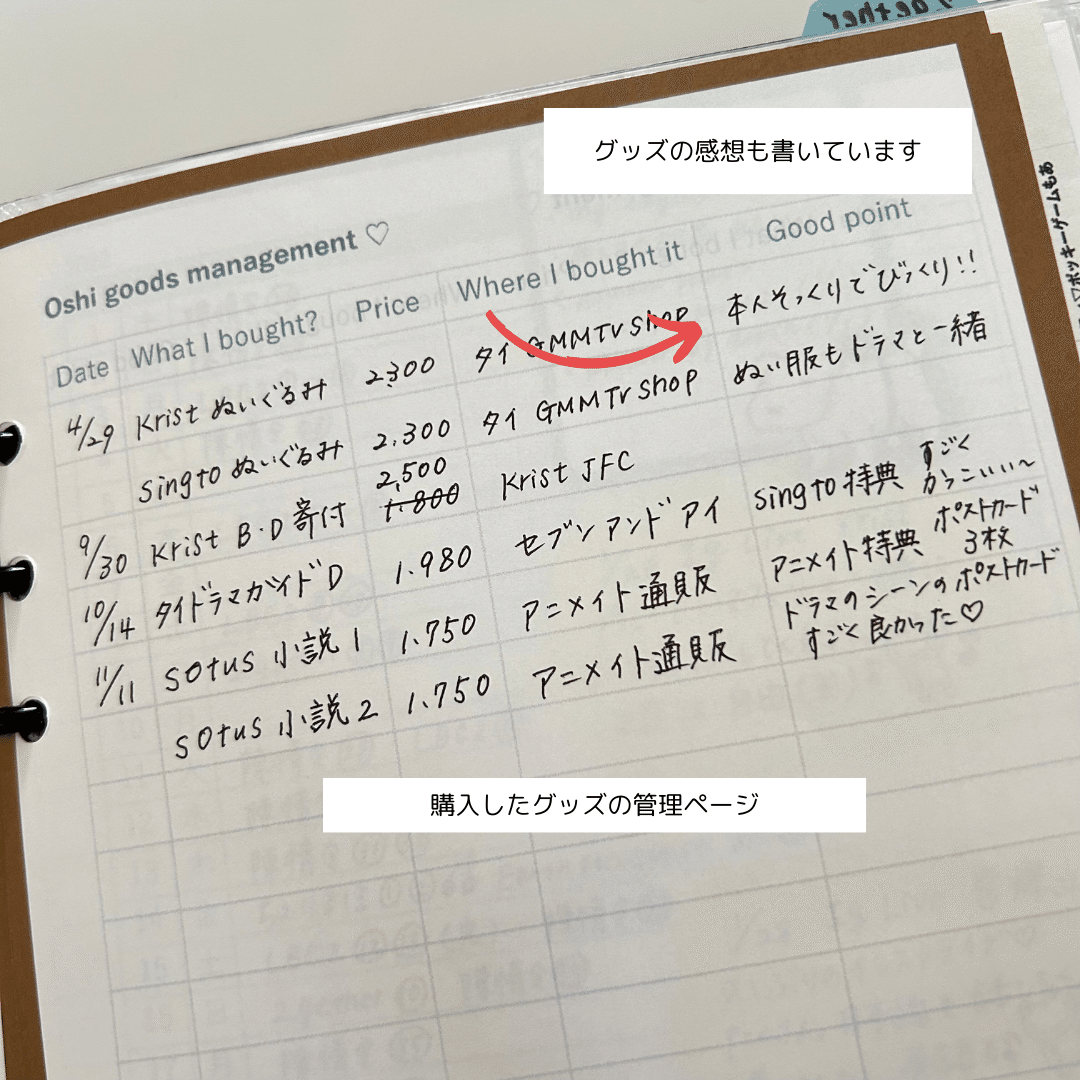 グッズの感想も書いています
Oshi goods management ♡
Date What I bought? Price Where I bought it Good point
4/29 Krist ぬいぐるみ 2,300 タイ GMMTV shop 本人そっくりでびっくり!!
singto ぬいぐるみ 2,300 タイ GMMTV shop ぬい服もドラマと一緒
9/30 Krist B・D 寄付 2,500 1,800 Krist JFC
10/14 タイドラマガイドD 1,980 セブンアンドアイ singto 特典 すごくかっこいい〜
11/11 sotus 小説 1 1,750 アニメイト通販 アニメイト特典 ポストカード3枚
sotus 小説 2 1,750 アニメイト通販 ドラマのシーンのポストカードすごく良かった♡
購入したグッズの管理ページ
ポッキーゲームもあ